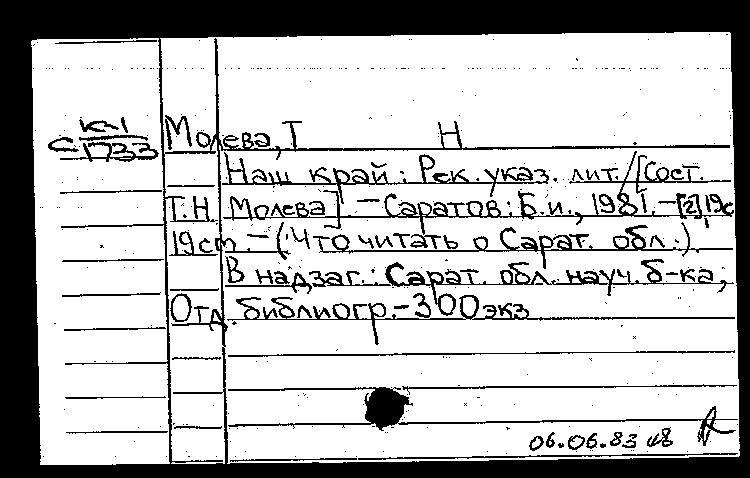 К-1
С 1733
Молева, Т Н
Наш край: Рек. указ. лит. / [Сост.
Т.Н Молева] - Саратов: Б.и., 1981. - [2], 19с
19 см. - (Что читать о Сарат. обл.).
В надзаг.: Сарат. обл. науч. б-ка,
Отд. библиогр. - 300 экз
06.06.83